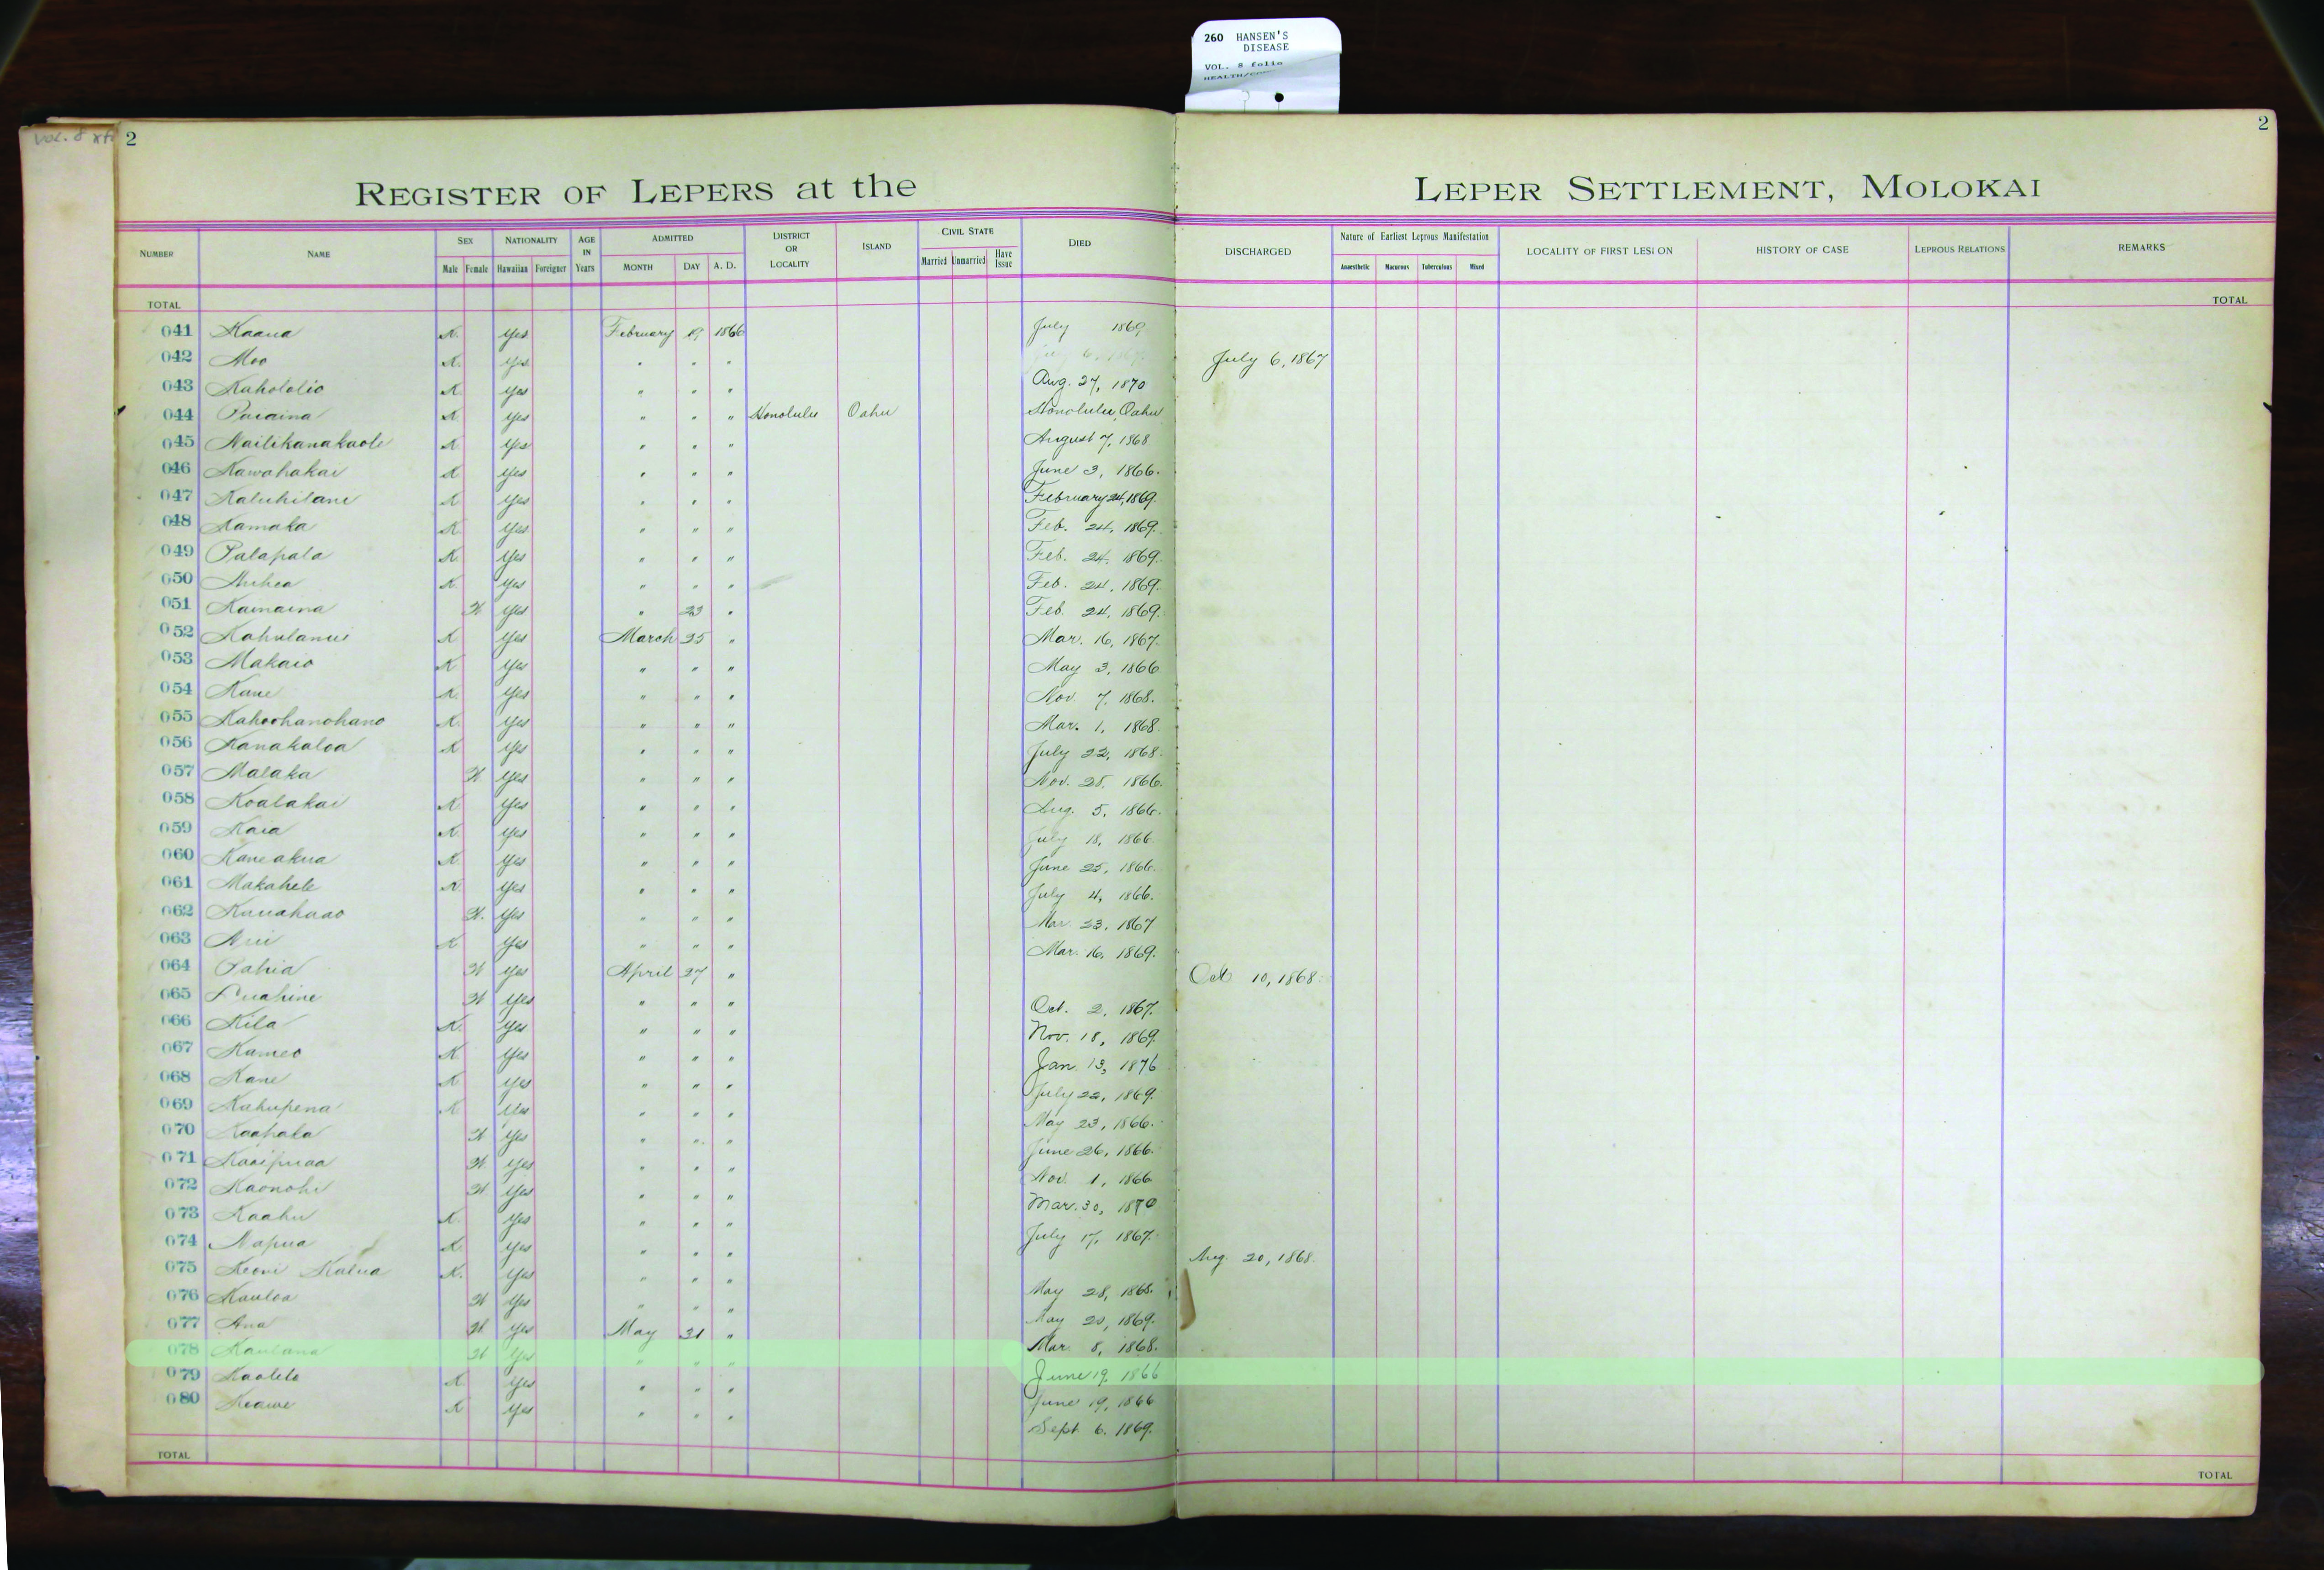 260 HANSEN'S
DISEASE
VOL. 8 folio
Vol. 8
2
2
REGISTER OF LEPERS at the LEPER SETTLEMENT, MOLOKAI
NUMBER NAME SEX NATIONALITY AGE IN Years ADMITTED DISTRICT OR LOCALITY ISLAND CIVIL STATE DIED DISCHARGED Nature of Earliest Leprous Manifestation LOCALITY OF FIRST LESION HISTORY OF CASE LEPROUS RELATIONS REMARKS
Male Female Hawaiian Foreigner MONTH DAY A. D. Married Unmarried Have Issue Anaesthetic Macurous Tuberculous Mixed
TOTAL TOTAL
041 Kaaua K. Yes February 19 1866 July 1869
042 Moo K. Yes " " " July 6, 1867
043 Kahololio K Yes " " " Aug. 27, 1870
044 Puaaina K Yes " " " Honolulu Oahu Honolulu, Oahu
045 Nailikanakaole K Yes " " " August 7, 1868
046 Kawahakai K Yes " " " June 3, 1866.
047 Kaluhilani K Yes " " " February 24, 1869.
048 Kamaka K Yes " " " Feb. 24, 1869.
049 Palapala K. Yes " " " Feb. 24, 1869.
050 Auhea K. Yes " " " Feb. 24, 1869.
051 Kamaina W Yes " 23 " Feb. 24, 1869.
052 Kahulanui K Yes March 25 " Mar. 16, 1867.
053 Makaio K Yes " " " May 3, 1866
054 Kane K. Yes " " " Nov 7, 1868.
055 Kahoohanohano K. Yes " " " Mar. 1, 1868.
056 Kanakaloa K Yes " " " July 22, 1868.
057 Malaka W Yes " " " Nov. 28, 1866.
058 Koalakai K Yes " " " Aug. 5, 1866.
059 Kaia K. Yes " " " July 18, 1866.
060 Kaneakua K Yes " " " June 25, 1866.
061 Makahele K Yes " " " July 4, 1866.
062 Kauahaao W. Yes " " " Mar 23, 1867
063 Aui K Yes " " " Mar. 16, 1869.
064 Pahia W Yes April 27 " Oct 10, 1868.
065 Luahine W Yes " " " Oct. 2, 1867.
066 Kila K. Yes " " " Nov. 18, 1869.
067 Kameo K Yes " " " Jan 13, 1876
068 Kane K Yes " " " July 22, 1869.
069 Kahupena K Yes " " " May 23, 1866.
070 Kaahala W Yes " " " June 26, 1866.
071 Kaaipuaa W. Yes " " " Nov. 1, 1866
072 Kaonohi W Yes " " " Mar. 30, 1870
073 Kaahu K. Yes " " " July 17, 1867.
074 Napua K Yes " " " Aug. 20, 1868.
075 Keoni Kalua K. Yes " " " May 28, 1868.
076 Kauloa W Yes " " " May 20, 1869.
077 Ana W. Yes May 31 " Mar 8, 1868.
078 Kaulana W Yes " " " June 19, 1866
079 Kaolelo K Yes " " " June 19, 1866
080 Keawe K Yes " " " Sept 6. 1869.
TOTAL TOTAL